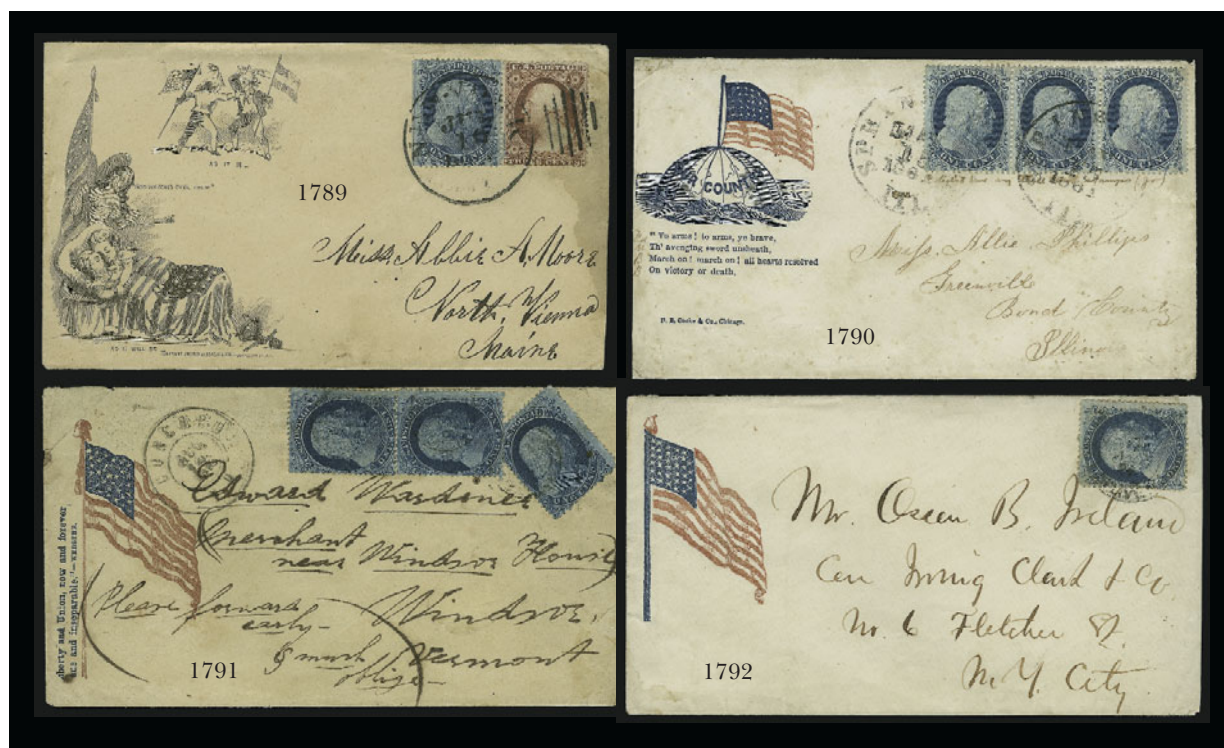 1789
AS IT IS.
Miss Abbie A. Moore
North Vienna
Maine
OUR COUNTRY
"To arms! to arms, ye brave,
Th' avenging sword unsheath,
March on! march on! all hearts resolved
On victory or death.
1790
Miss Allie Phillips
Greenville
Bond County
Illinois
ONE CENT
ONE CENT
ONE CENT
berty and Union, now and forever
and inseparable."—WEBSTER.
Edward Wardener
Merchant
near Windsor House
Windsor,
Please forward
early-
& much
oblige
Vermont
1791
Mr. Oscar B. Ireland
Care Irving Clark & Co.
No. 6 Fletcher St.
N. Y. City
1792